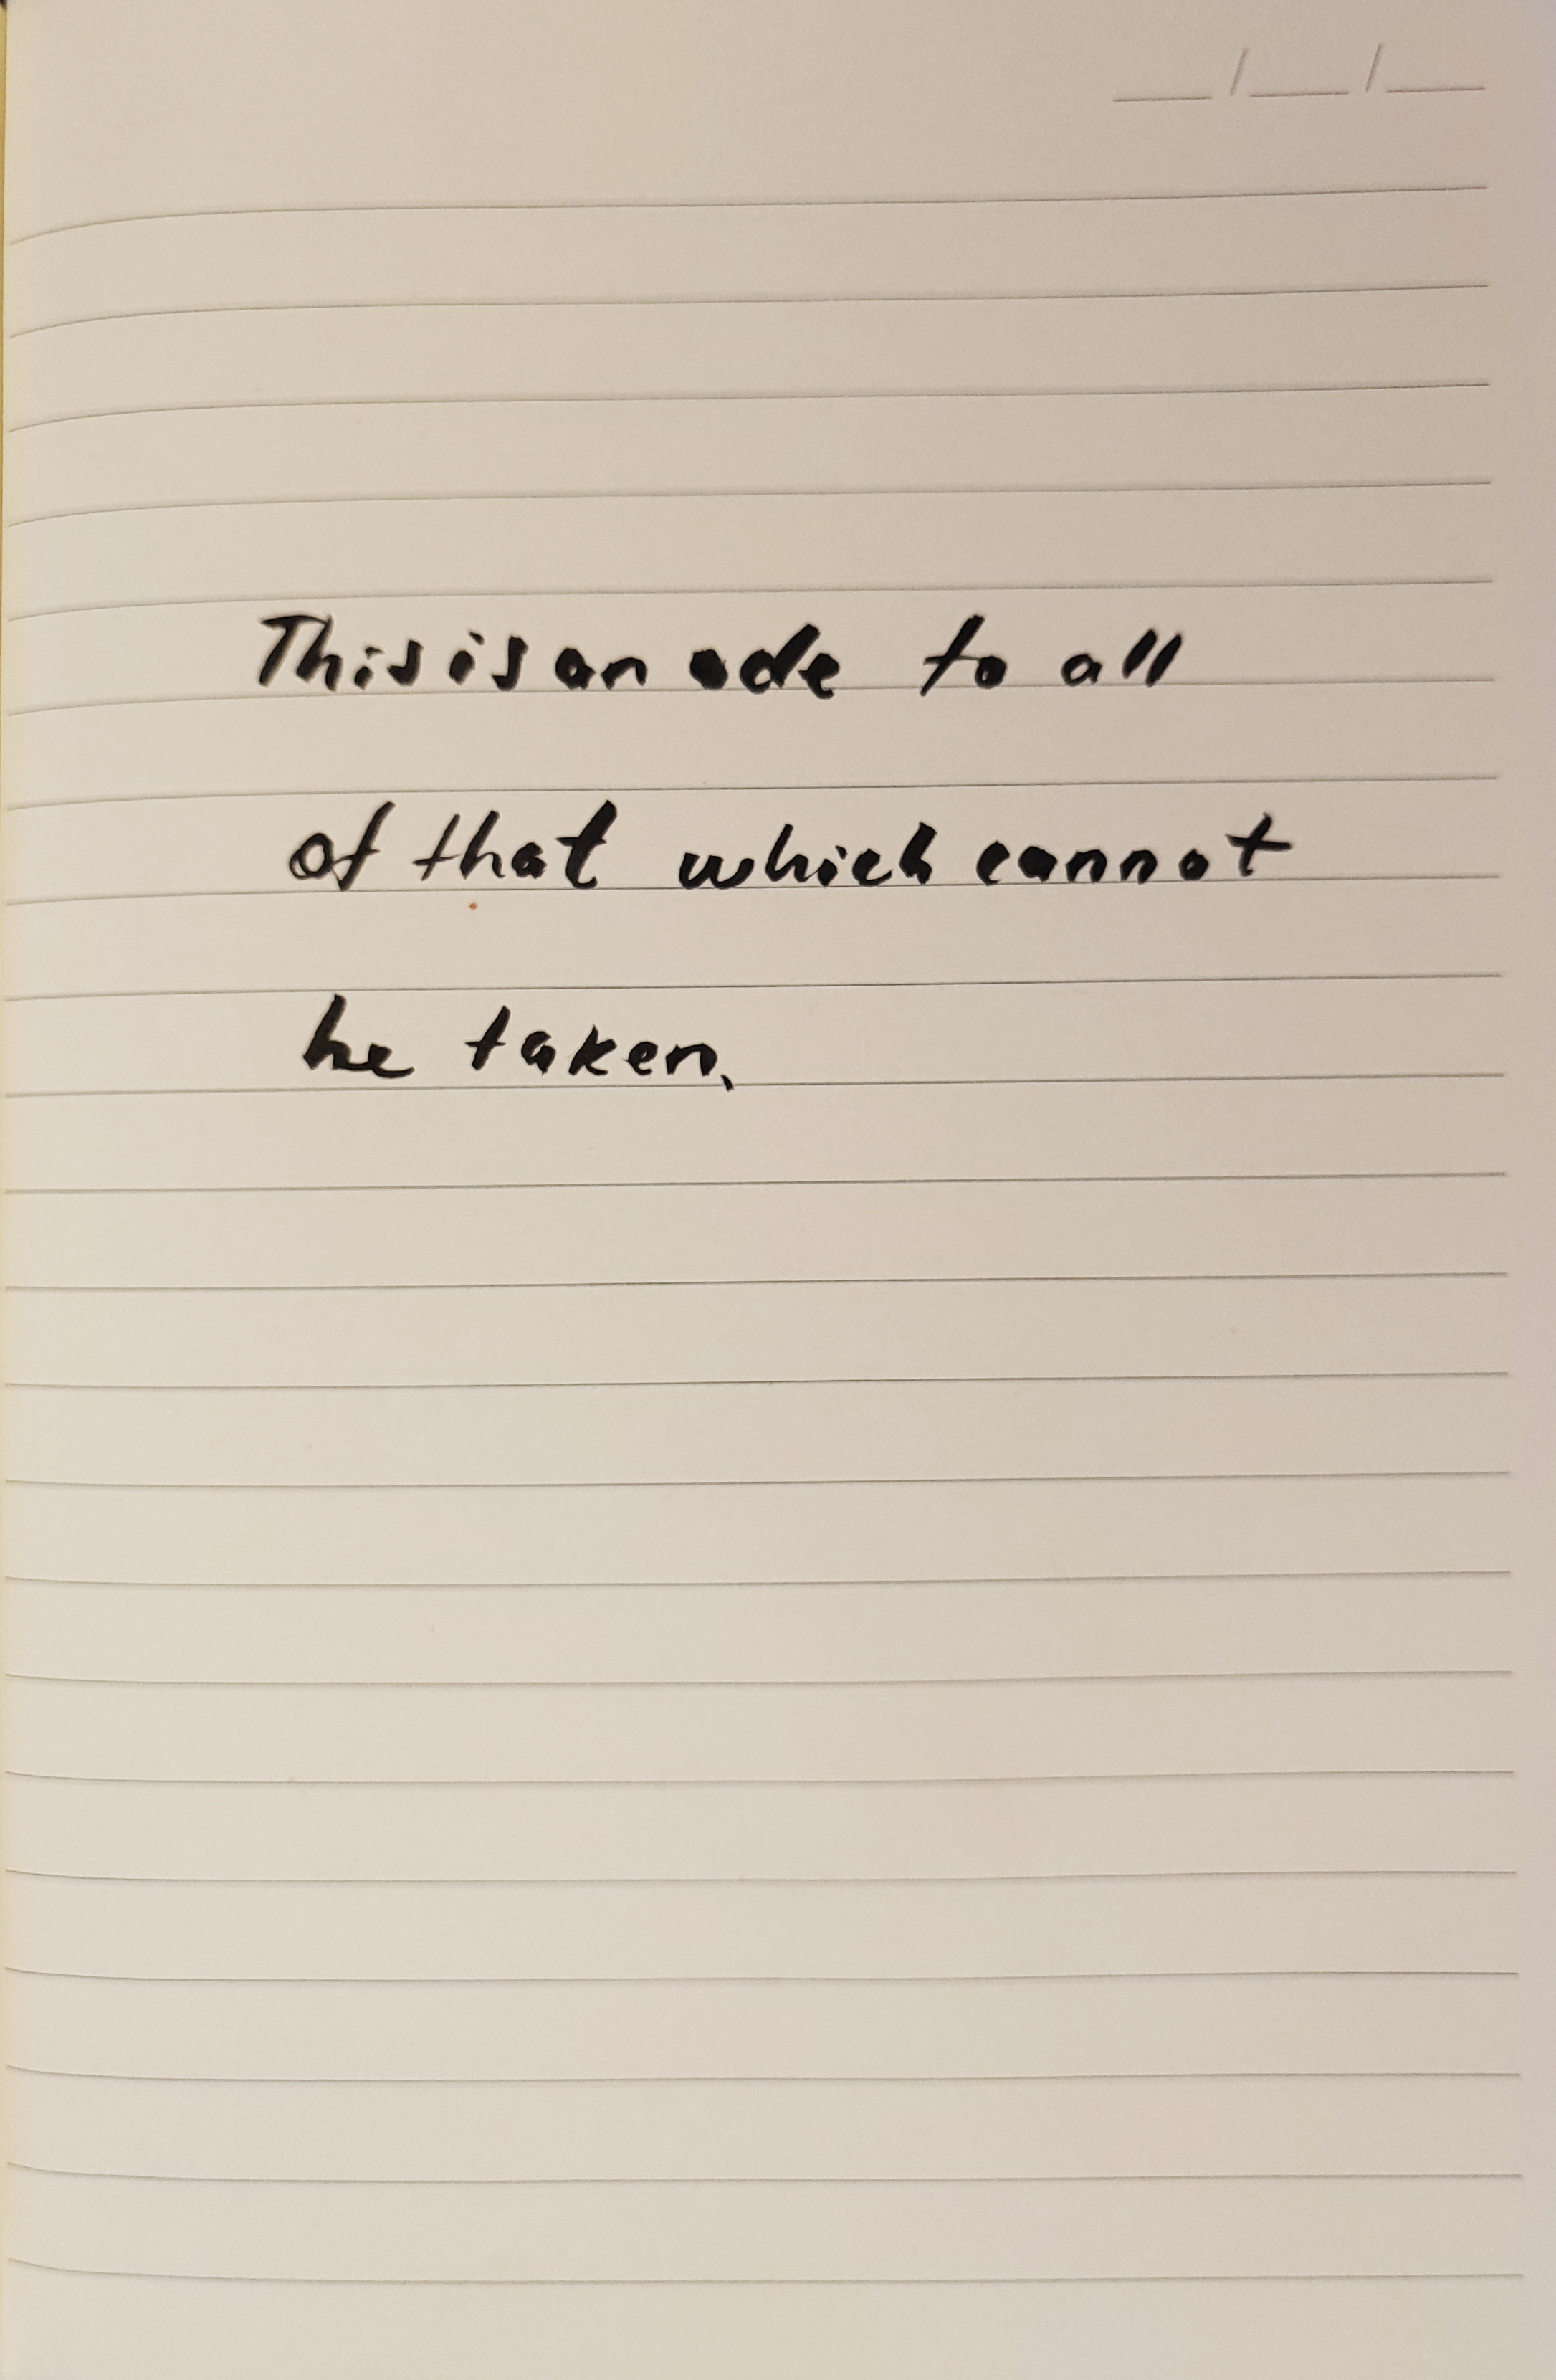 This is an ode to all
of that which cannot
be taken.